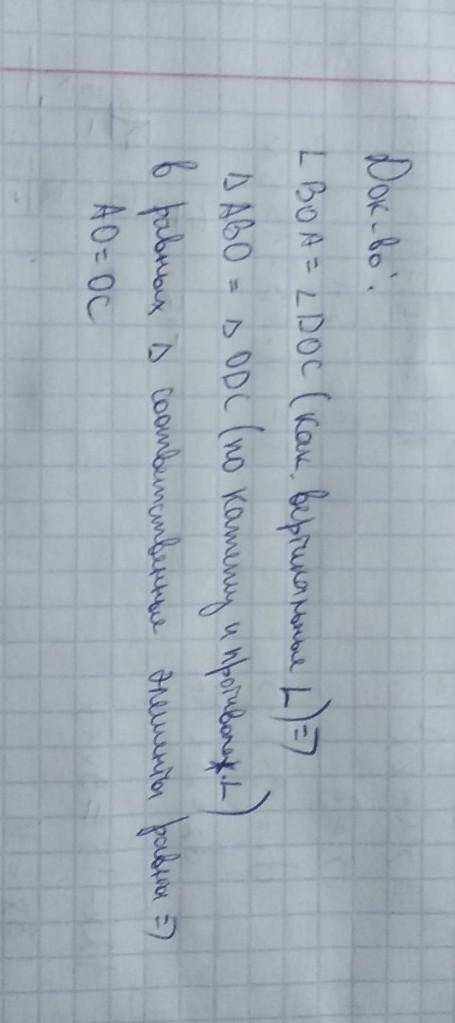 Док-во:
∠ BOA = ∠ DOC (как вертикальные ∠) =>
△ ABO = △ ODC (по катету и противолеж. ∠)
в равных △ соответственные элементы равны =>
AO = OC